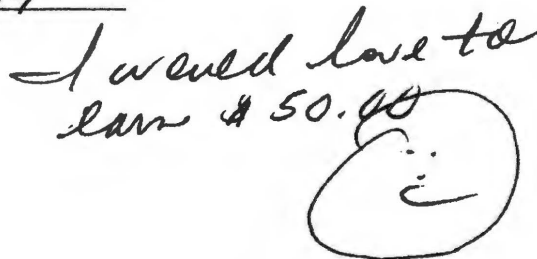 I would love to
earn $50.00